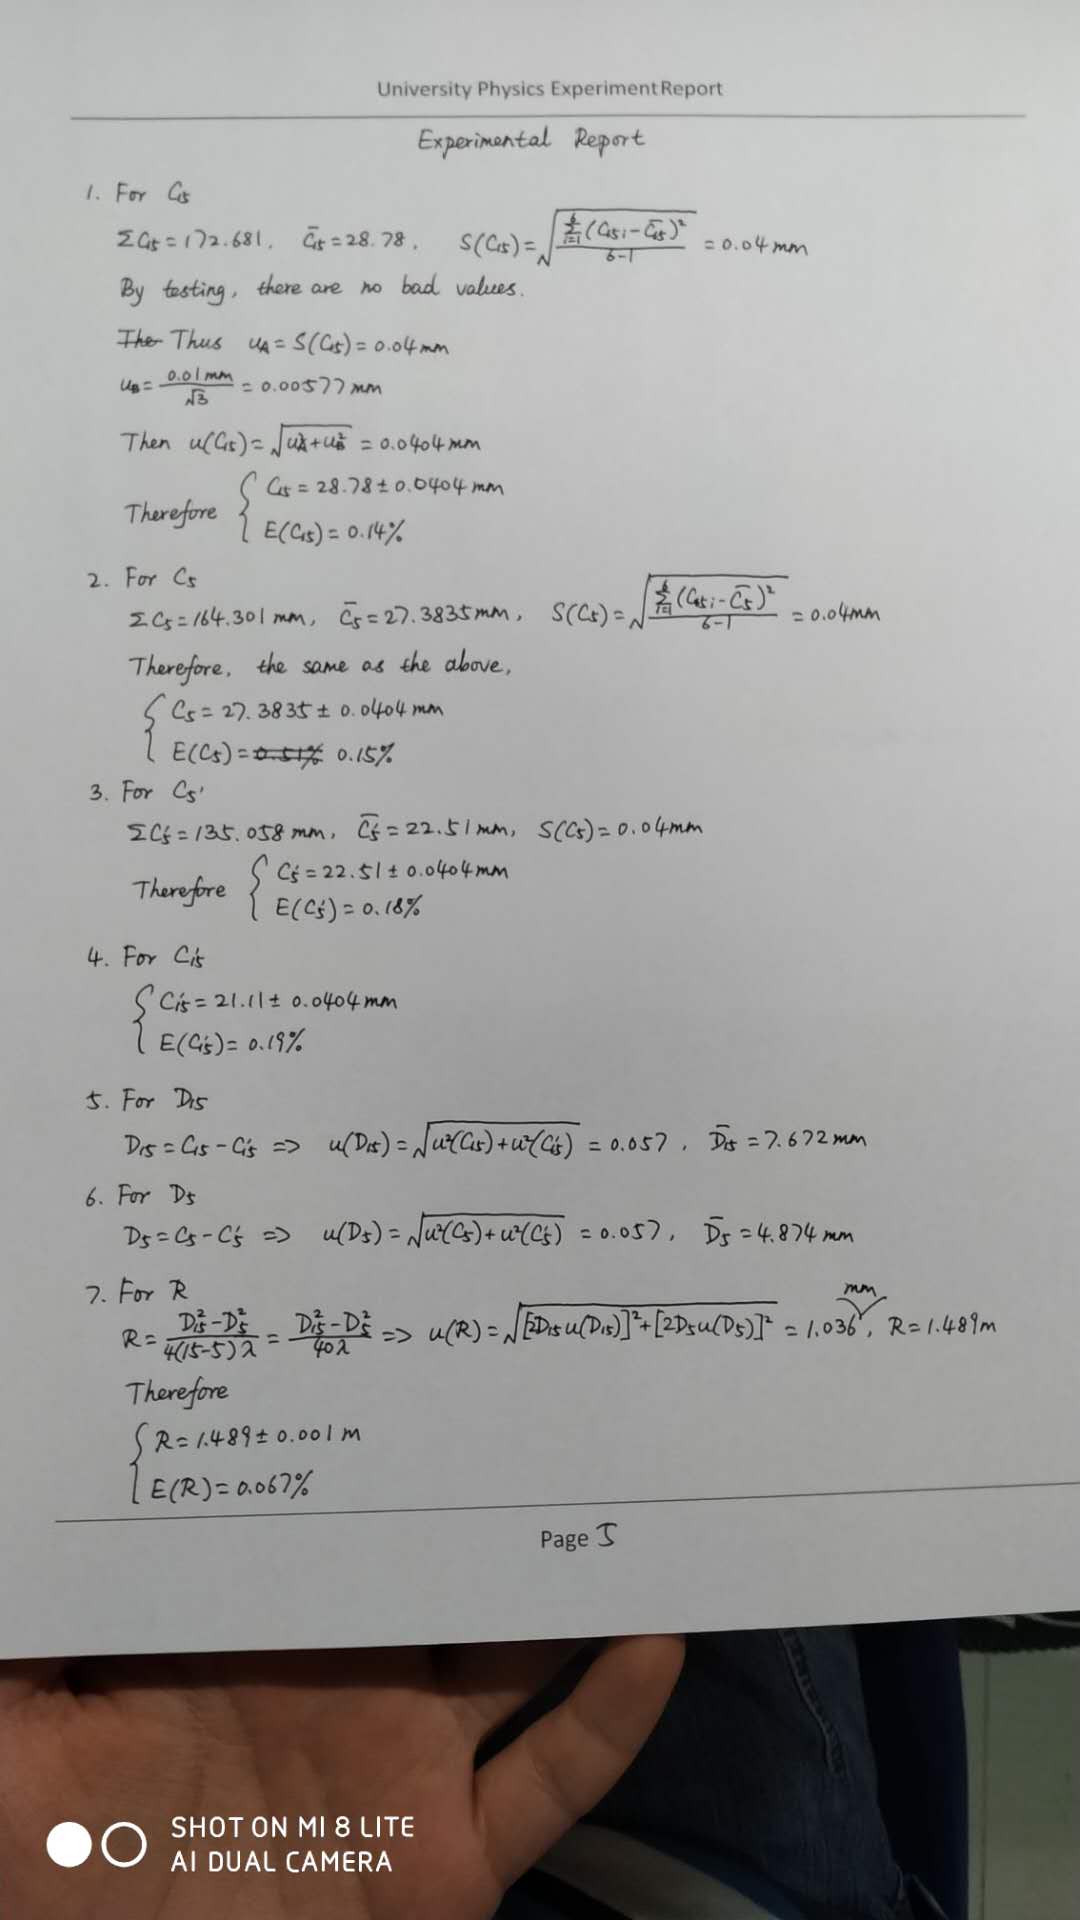 University Physics Experiment Report
Experimental Report
1. For C₁₅
ΣC₁₅ = 172.681, C̄₁₅ = 28.78, S(C₁₅) = √(Σᵢ₌₁⁶(C₁₅ᵢ - C̄₁₅)²/(6-1)) = 0.04 mm
By testing, there are no bad values.
The Thus u_A = S(C₁₅) = 0.04 mm
u_B = 0.01 mm/√3 = 0.00577 mm
Then u(C₁₅) = √(u_A² + u_B²) = 0.0404 mm
Therefore { C₁₅ = 28.78 ± 0.0404 mm
E(C₁₅) = 0.14%
2. For C₅
ΣC₅ = 164.301 mm, C̄₅ = 27.3835 mm, S(C₅) = √(Σᵢ₌₁⁶(C₅ᵢ - C̄₅)²/(6-1)) = 0.04 mm
Therefore, the same as the above,
{ C₅ = 27.3835 ± 0.0404 mm
E(C₅) = 0.51% 0.15%
3. For C₅'
ΣC₅' = 135.058 mm, C̄₅' = 22.51 mm, S(C₅) = 0.04 mm
Therefore { C₅' = 22.51 ± 0.0404 mm
E(C₅') = 0.18%
4. For C₁₅'
{ C₁₅' = 21.11 ± 0.0404 mm
E(C₁₅') = 0.19%
5. For D₁₅
D₁₅ = C₁₅ - C₁₅' => u(D₁₅) = √(u²(C₁₅) + u²(C₁₅')) = 0.057, D̄₁₅ = 7.672 mm
6. For D₅
D₅ = C₅ - C₅' => u(D₅) = √(u²(C₅) + u²(C₅')) = 0.057, D̄₅ = 4.874 mm
7. For R
R = (D₁₅² - D₅²)/(4(15-5)λ) = (D₁₅² - D₅²)/(40λ) => u(R) = √([2D₁₅u(D₁₅)]² + [2D₅u(D₅)]²) = 1.036 mm, R = 1.489 m
Therefore
{ R = 1.489 ± 0.001 m
E(R) = 0.067%
Page 5
SHOT ON MI 8 LITE
AI DUAL CAMERA